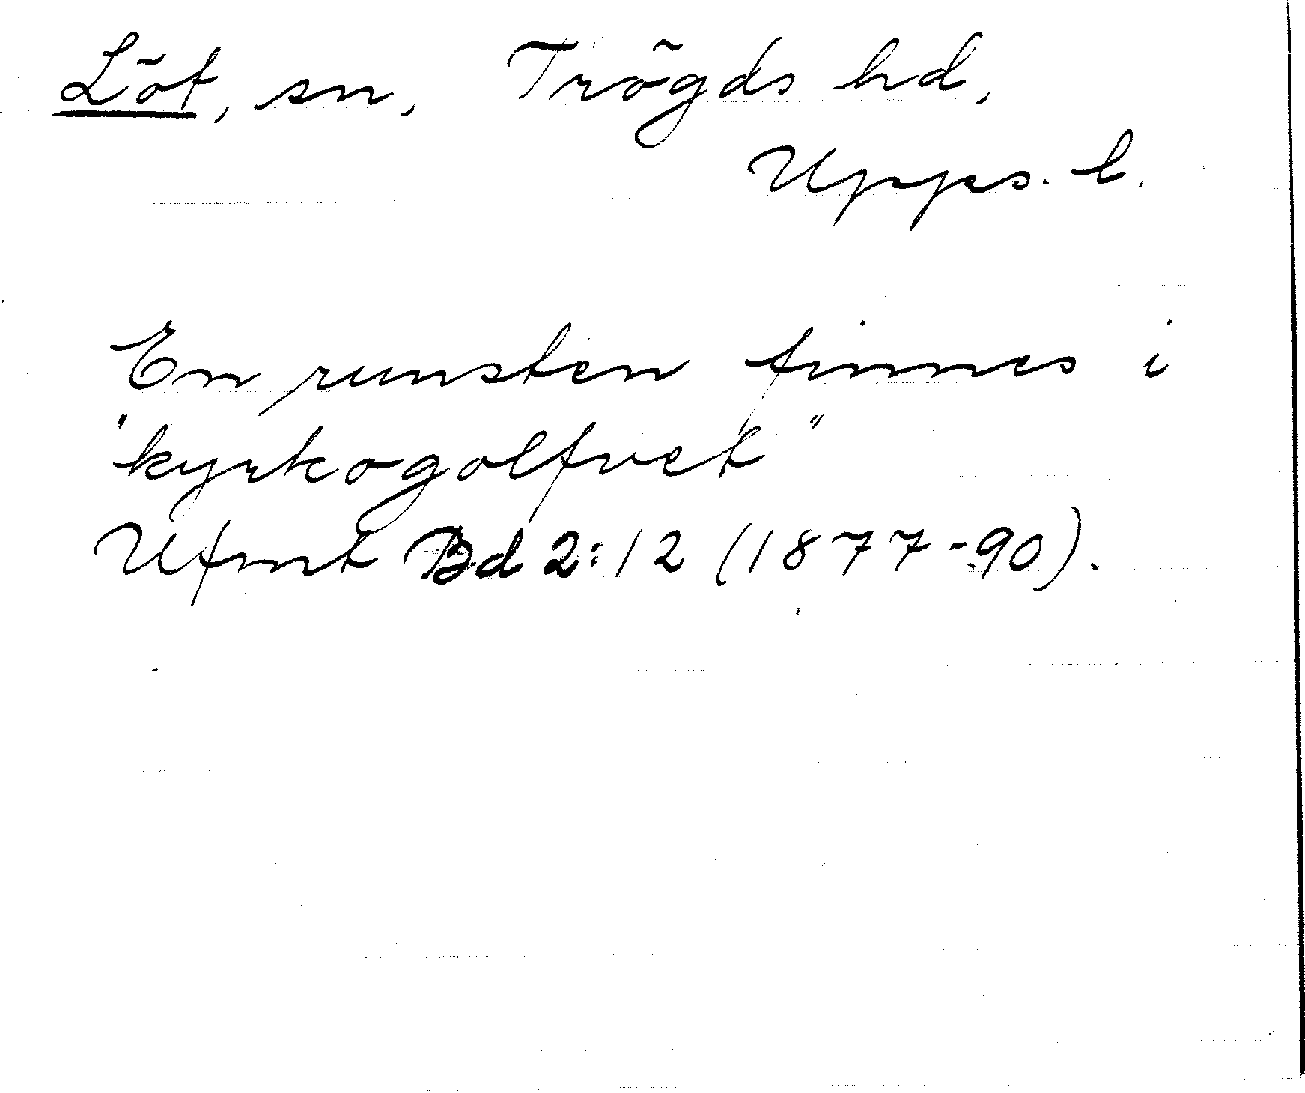 Löt, sn, Trögds hd,
Upps. l.
En runsten finnes i
"kyrkogolfvet"
Ufmt Bd 2:12 (1877-90).